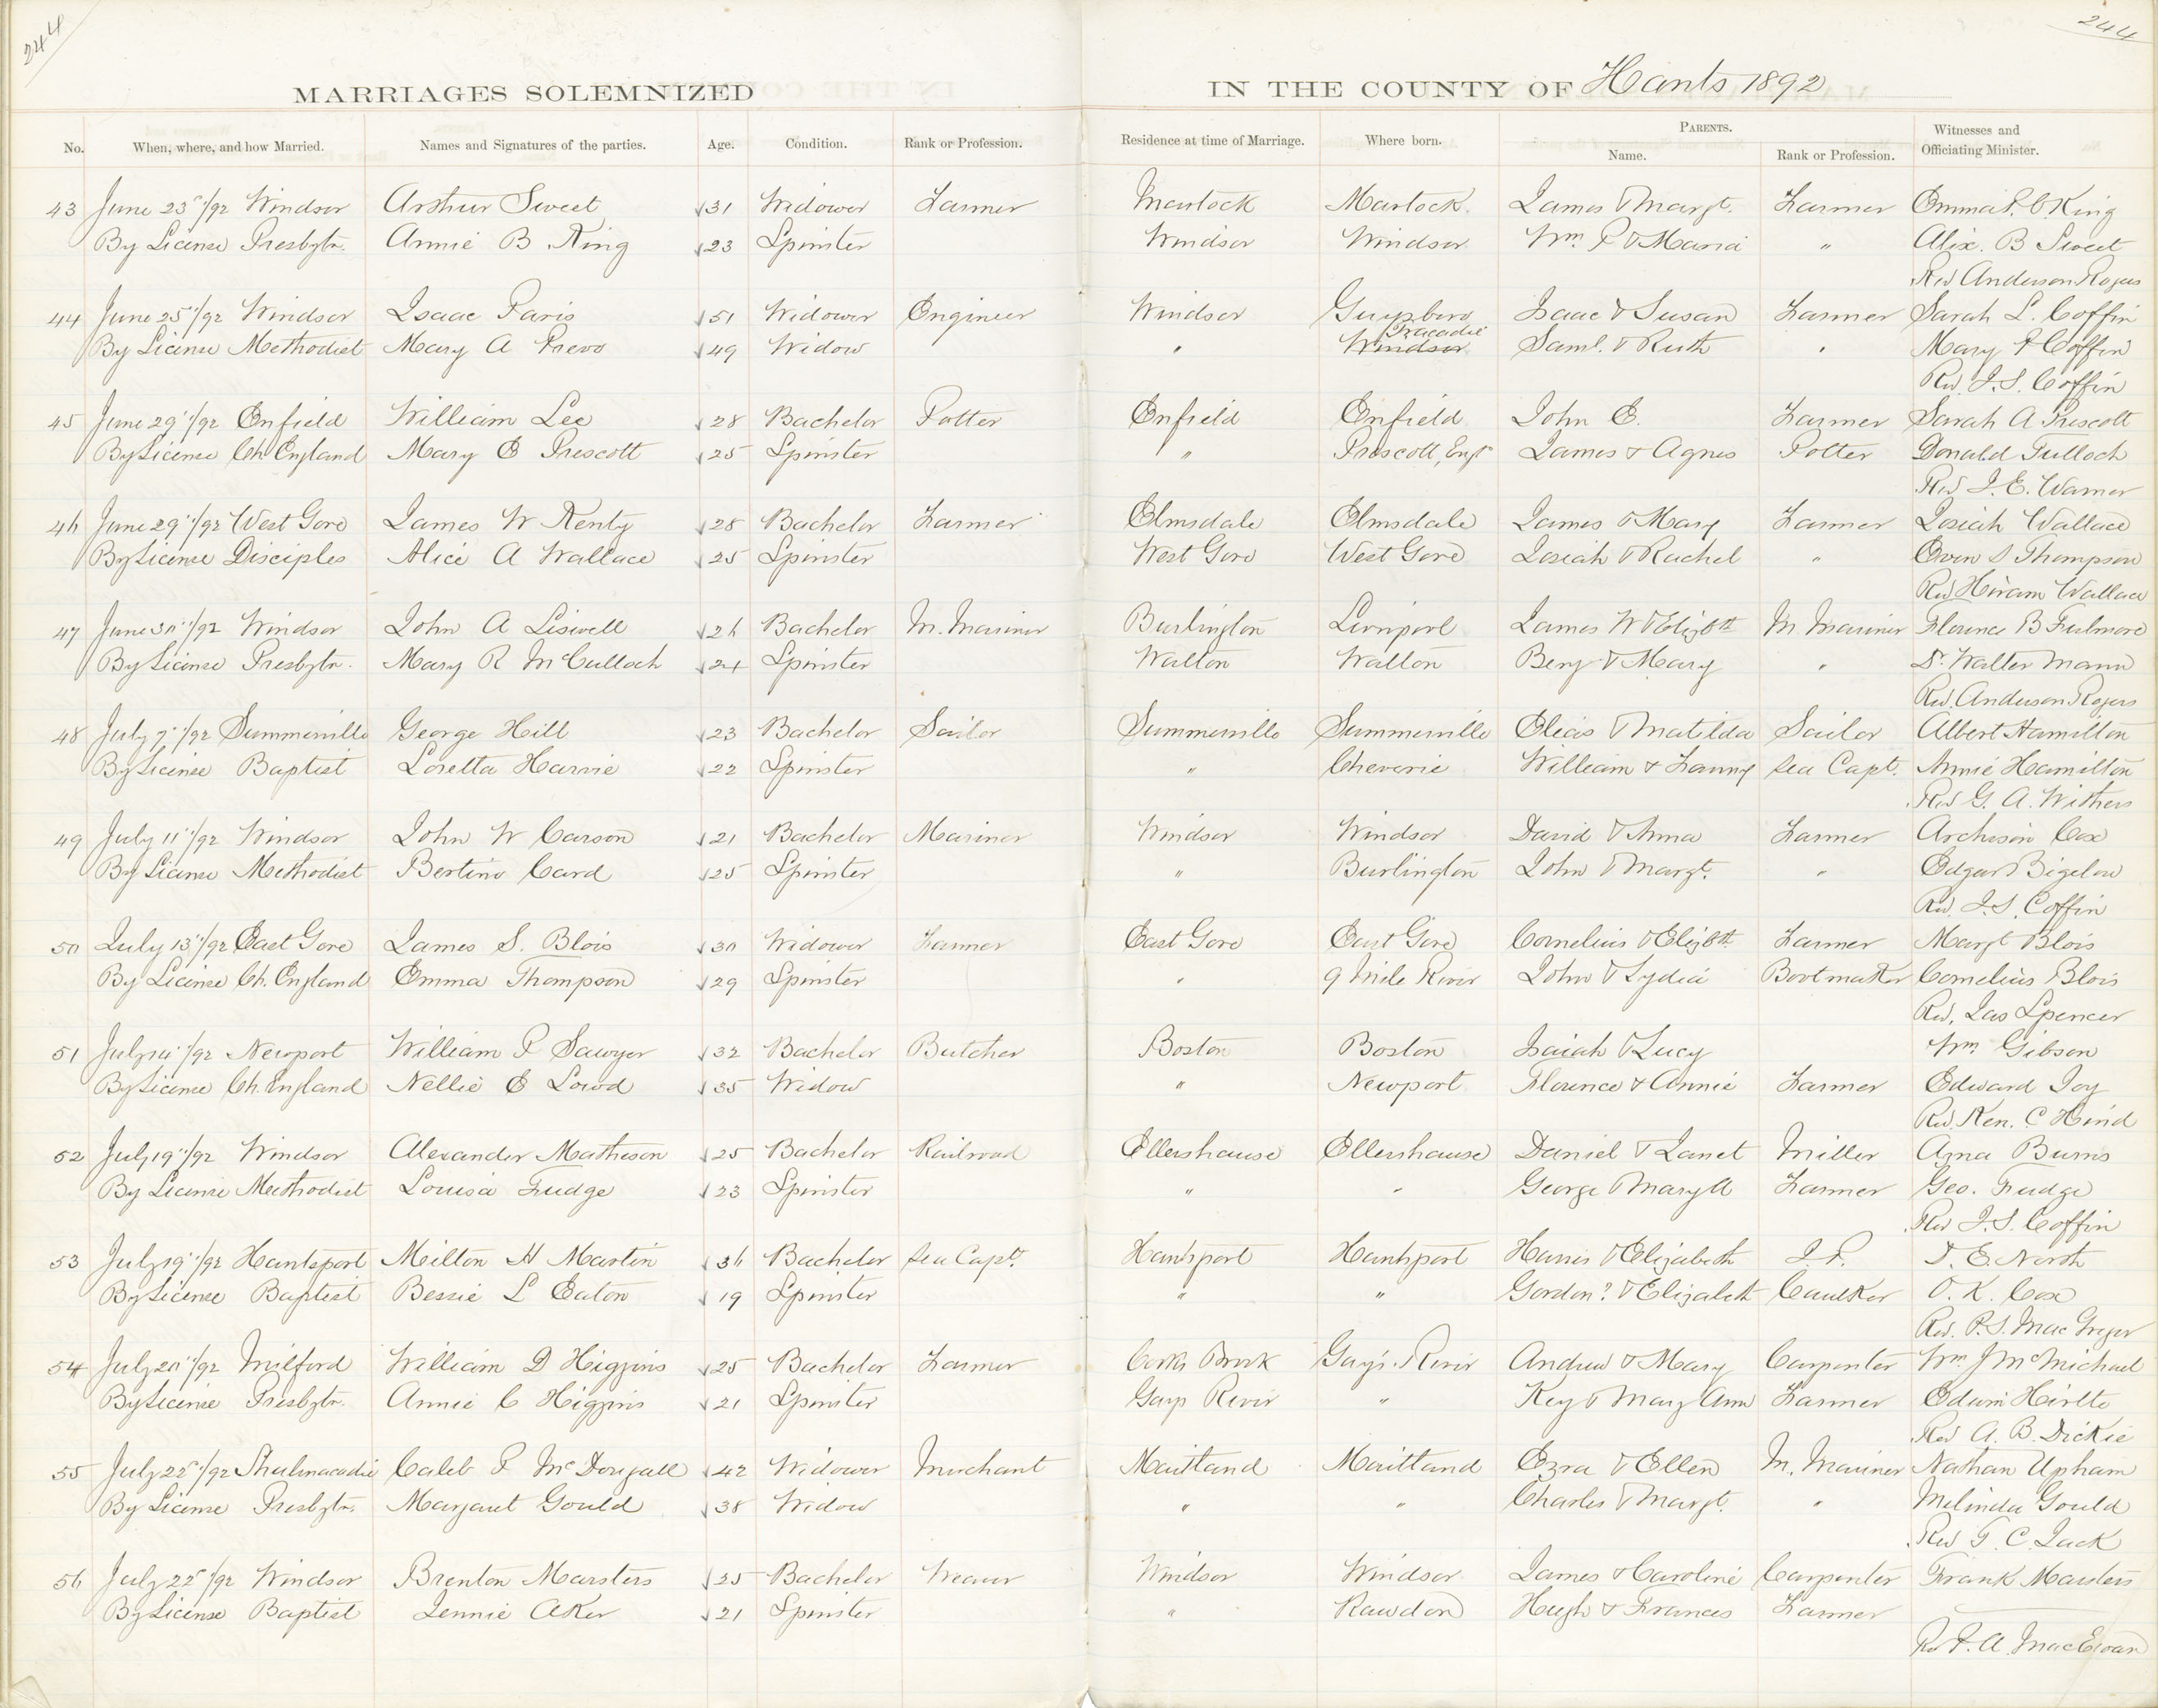 244
244
MARRIAGES SOLEMNIZED IN THE COUNTY OF Hants 1892
No. When, where, and how Married. Names and Signatures of the parties. Age. Condition. Rank or Profession. Residence at time of Marriage. Where born. PARENTS. Name. Rank or Profession. Witnesses and Officiating Minister.
43 June 23"/92 Windsor Arthur Sweet 31 Widower Farmer Martock Martock. James & Margt. Farmer Emma P. O. King
By License Presbytn. Annie B King 23 Spinster Windsor Windsor Wm P & Maria " Alix. B Sweet
Rev Anderson Rogers
44 June 25"/92 Windsor Isaac Paris 51 Widower Engineer Windsor Guysboro Isaac & Susan Farmer Sarah L. Coffin
Tracadie
By License Methodist Mary A Prevo 49 Widow " Windsor Saml. & Ruth " Mary A Coffin
Rev. J. S. Coffin
45 June 29"/92 Enfield William Lee 28 Bachelor Potter Enfield Enfield John E. Farmer Sarah A Prescott
By License Ch. England Mary E Prescott 25 Spinster " Prescott, Engd James & Agnes Potter Donald Tulloch
Rev J. E. Warner
46 June 29"/92 West Gore James W Kenty 28 Bachelor Farmer Elmsdale Elmsdale James & Mary Farmer Josiah Wallace
By License Disciples Alice A Wallace 25 Spinster West Gore West Gore Josiah & Rachel " Owen S Thompson
Rev. Hiram Wallace
47 June 30"/92 Windsor John A Liswell 26 Bachelor M. Mariner Burlington Liverpool James W & Elizbth M Mariner Florence B Fulmore
By License Presbytn. Mary R McCulloch 24 Spinster Walton Walton Benj & Mary " D. Walter Mann
Rev. Anderson Rogers
48 July 7"/92 Summerville George Hill 23 Bachelor Sailor Summerville Summerville Elias & Matilda Sailor Albert Hamilton
By License Baptist Loretta Harvie 22 Spinster " Cheverie William & Fanny Sea Capt. Annie Hamilton
Rev G. A. Withers
49 July 11"/92 Windsor John W Carson 21 Bachelor Mariner Windsor Windsor David & Anna Farmer Archison Cox
By License Methodist Bertino Card 25 Spinster " Burlington John & Margt. " Edgar Bigelow
Rev. J. S. Coffin
50 July 13"/92 East Gore James S. Blois 30 Widower Farmer East Gore East Gore Cornelius & Elizbth Farmer Margt Blois
By License Ch. England Emma Thompson 29 Spinster " 9 Mile River John & Lydia Bootmaker Cornelius Blois
Rev. Jas Spencer
51 July 14"/92 Newport William P Sawyer 32 Bachelor Butcher Boston Boston Isaiah & Lucy Wm Gibson
By License Ch. England Nellie E Lowd 35 Widow " Newport Florence & Annie Farmer Edward Joy
Rev. Ken. C Hind
52 July 19"/92 Windsor Alexander Matheson 25 Bachelor Railroad Ellershause Ellershause Daniel & Janet Miller Burns
By License Methodist Louisa Fudge 23 Spinster " " George Mary A Farmer Geo. Fudge
Rev J. S. Coffin
53 July 19"/92 Hantsport Milton H Martin 36 Bachelor Sea Capt. Hantsport Hantsport Harris & Elizabeth J. P. E. North
By License Baptist Bessie L Eaton 19 Spinster " " Gordon? & Elizabeth Caulker O. K. Cox
Rev. P. S. MacGregor
54 July 20"/92 Milford William D Higgins 25 Bachelor Farmer Cooks Brook Gay's River Andrew & Mary Carpenter Wm J McMichael
By License Presbytn. Annie C Higgins 21 Spinster Gays River " Key & Mary Ann Farmer Edwin
Rev A. B. Dickie
55 July 22"/92 Shubnacadie Caleb P McDougall 42 Widower Merchant Maitland Maitland Ezra & Ellen M. Mariner Nathan Upham
By License Presbytn. Margaret Gould 38 Widow " " Charles & Margt. " Melinda Gould
Rev T. C. Jack
56 July 22"/92 Windsor Brenton Marsters 25 Bachelor Weaver Windsor Windsor James & Caroline Carpenter Frank Marsters
By License Baptist Jennie Aker 21 Spinster " Rawdon Hugh & Frances Farmer
Rev P. A. MacEwan